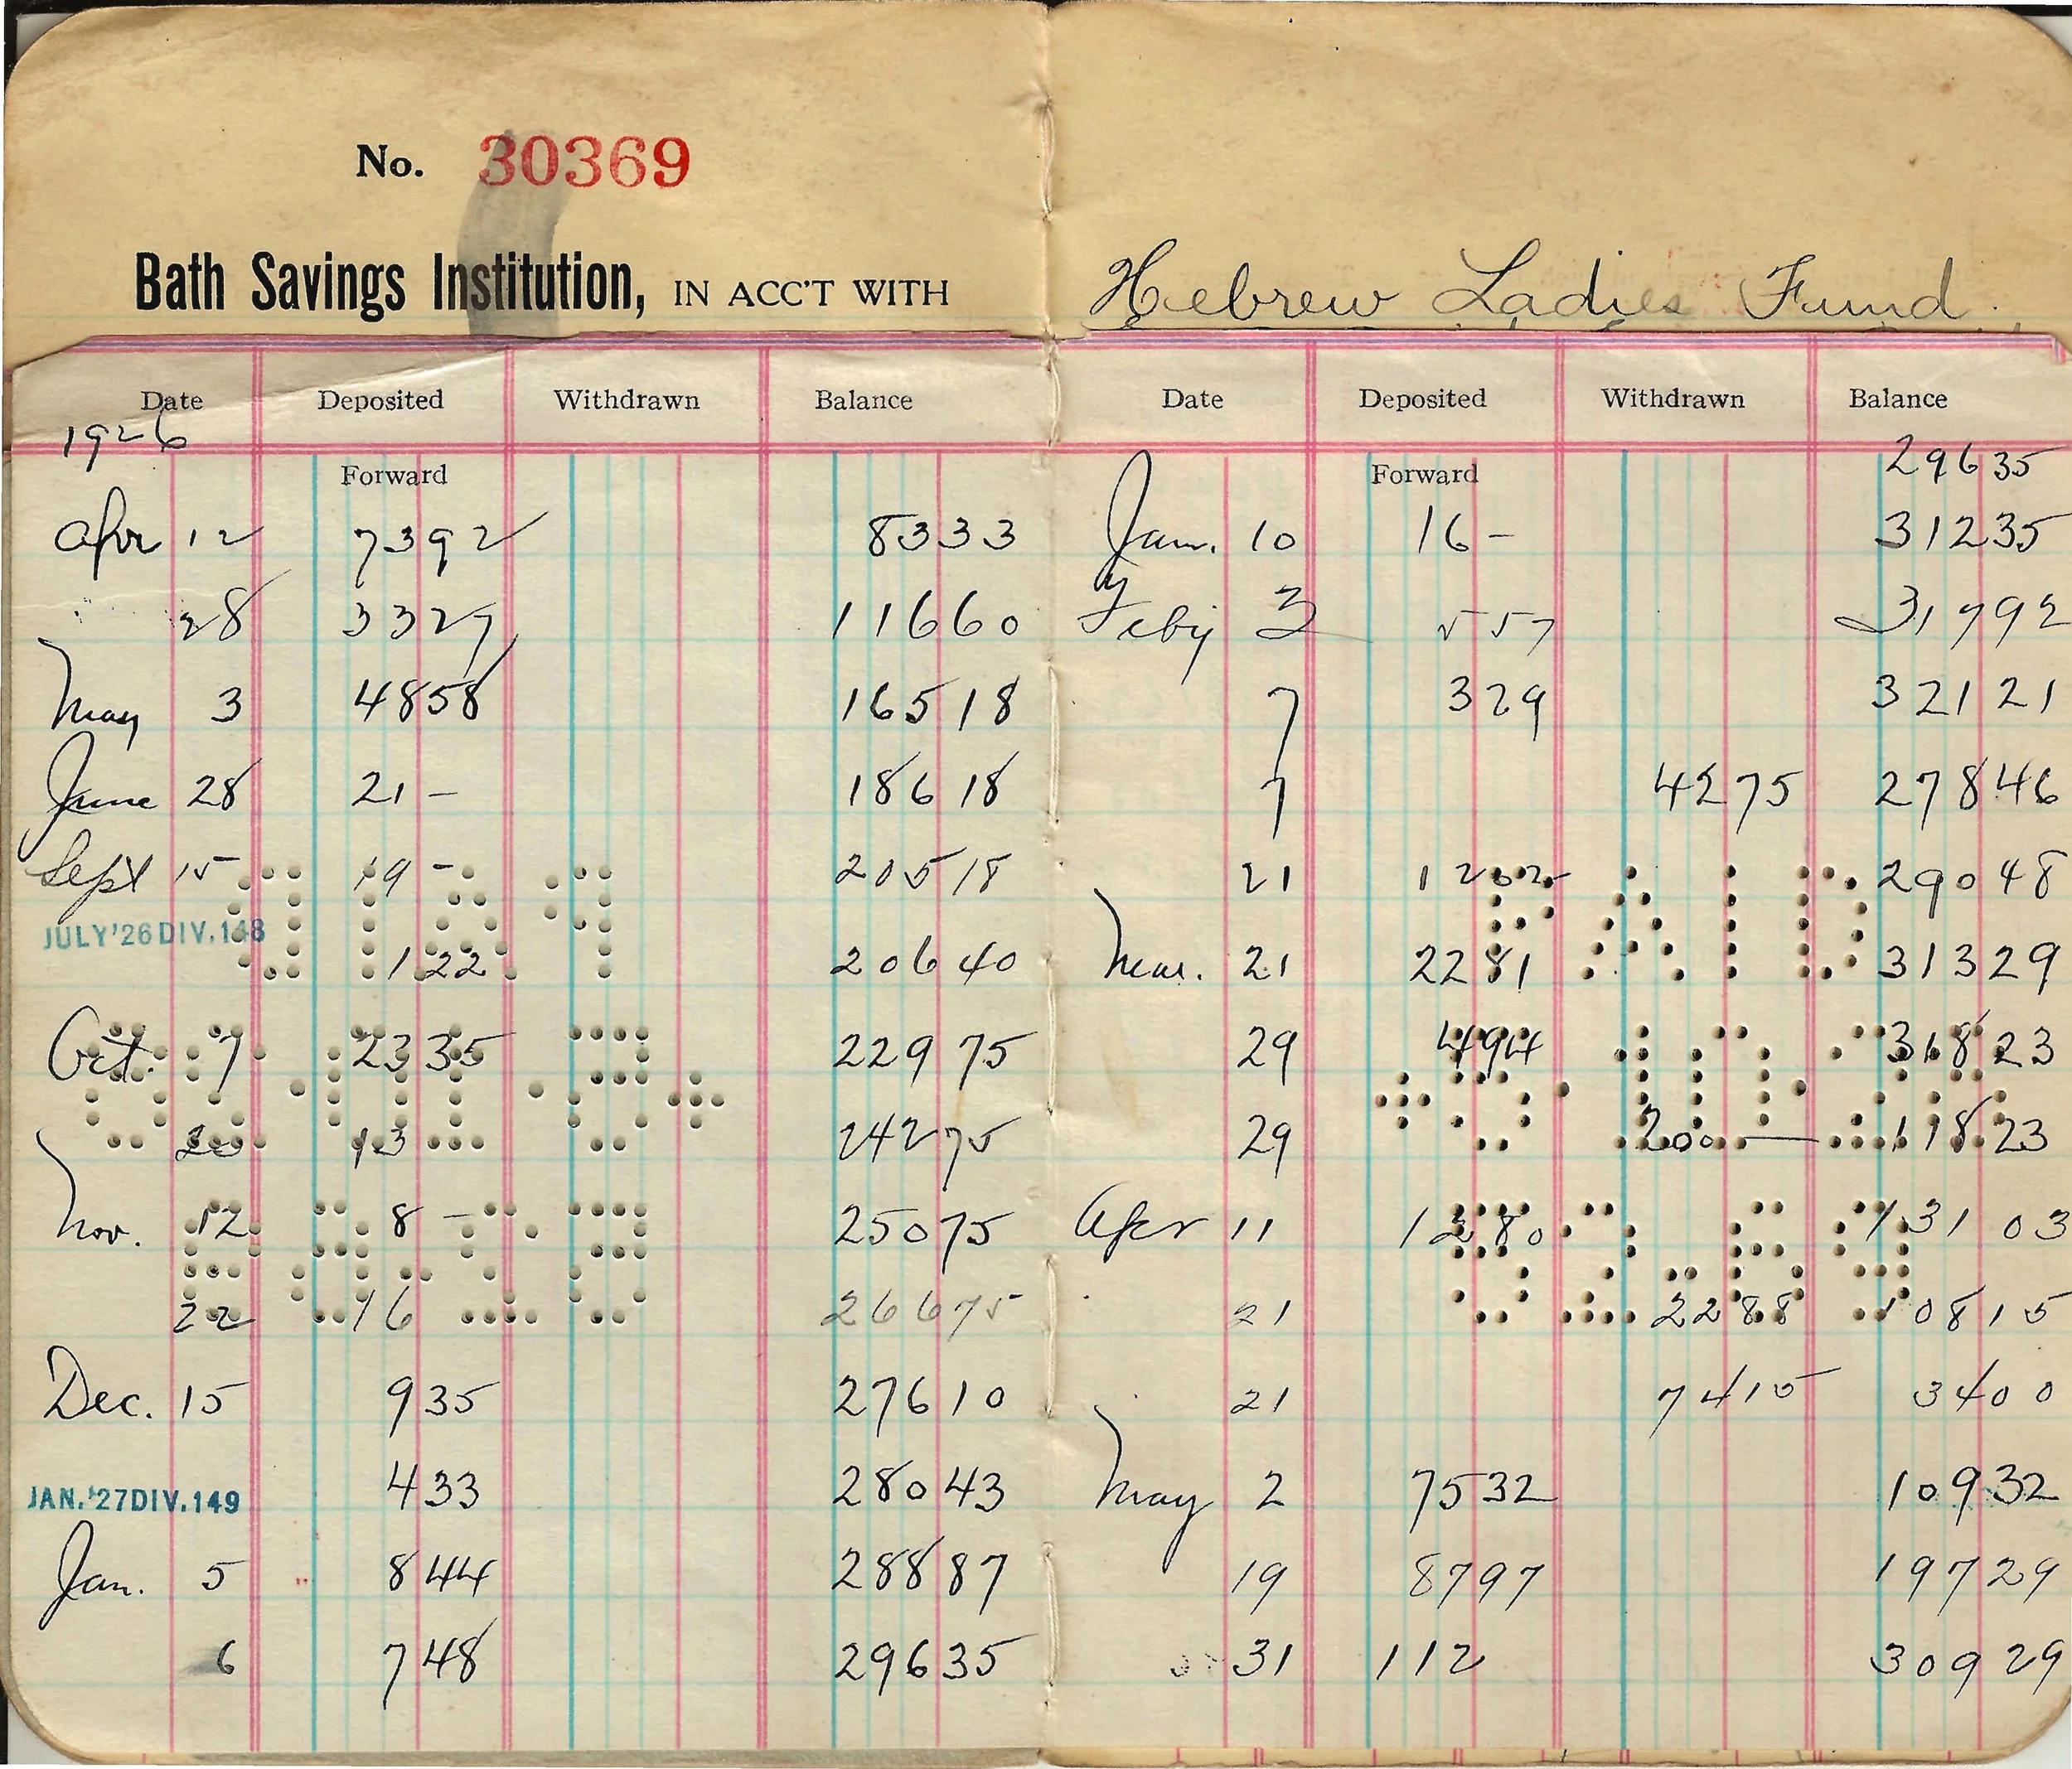 No. 30369
Bath Savings Institution, IN ACC'T WITH Hebrew Ladies Fund
Date Deposited Withdrawn Balance
1926
Forward
Apr 12 7392 8333
28 3327 11660
May 3 4858 16518
June 28 21 - 18618
Sept 15 19 - 20518
JULY '26 DIV. 148 122 20640
Oct. 7 2335 22975
20 13 24275
Nov. 12 8 - 25075
22 16 26675
Dec. 15 935 27610
JAN. '27 DIV. 149 433 28043
Jan. 5 844 28887
6 748 29635
Date Deposited Withdrawn Balance
Forward 29635
Jan. 10 16 - 31235
Feby 3 557 31792
7 329 32121
7 4275 27846
21 1202 29048
PAID
Mar. 21 2281 31329
29 494 31823
29 200 - 11823
Apr 11 1280 13103
21 2288 10815
21 7415 3400
May 2 7532 10932
19 8797 19729
31 112 30929